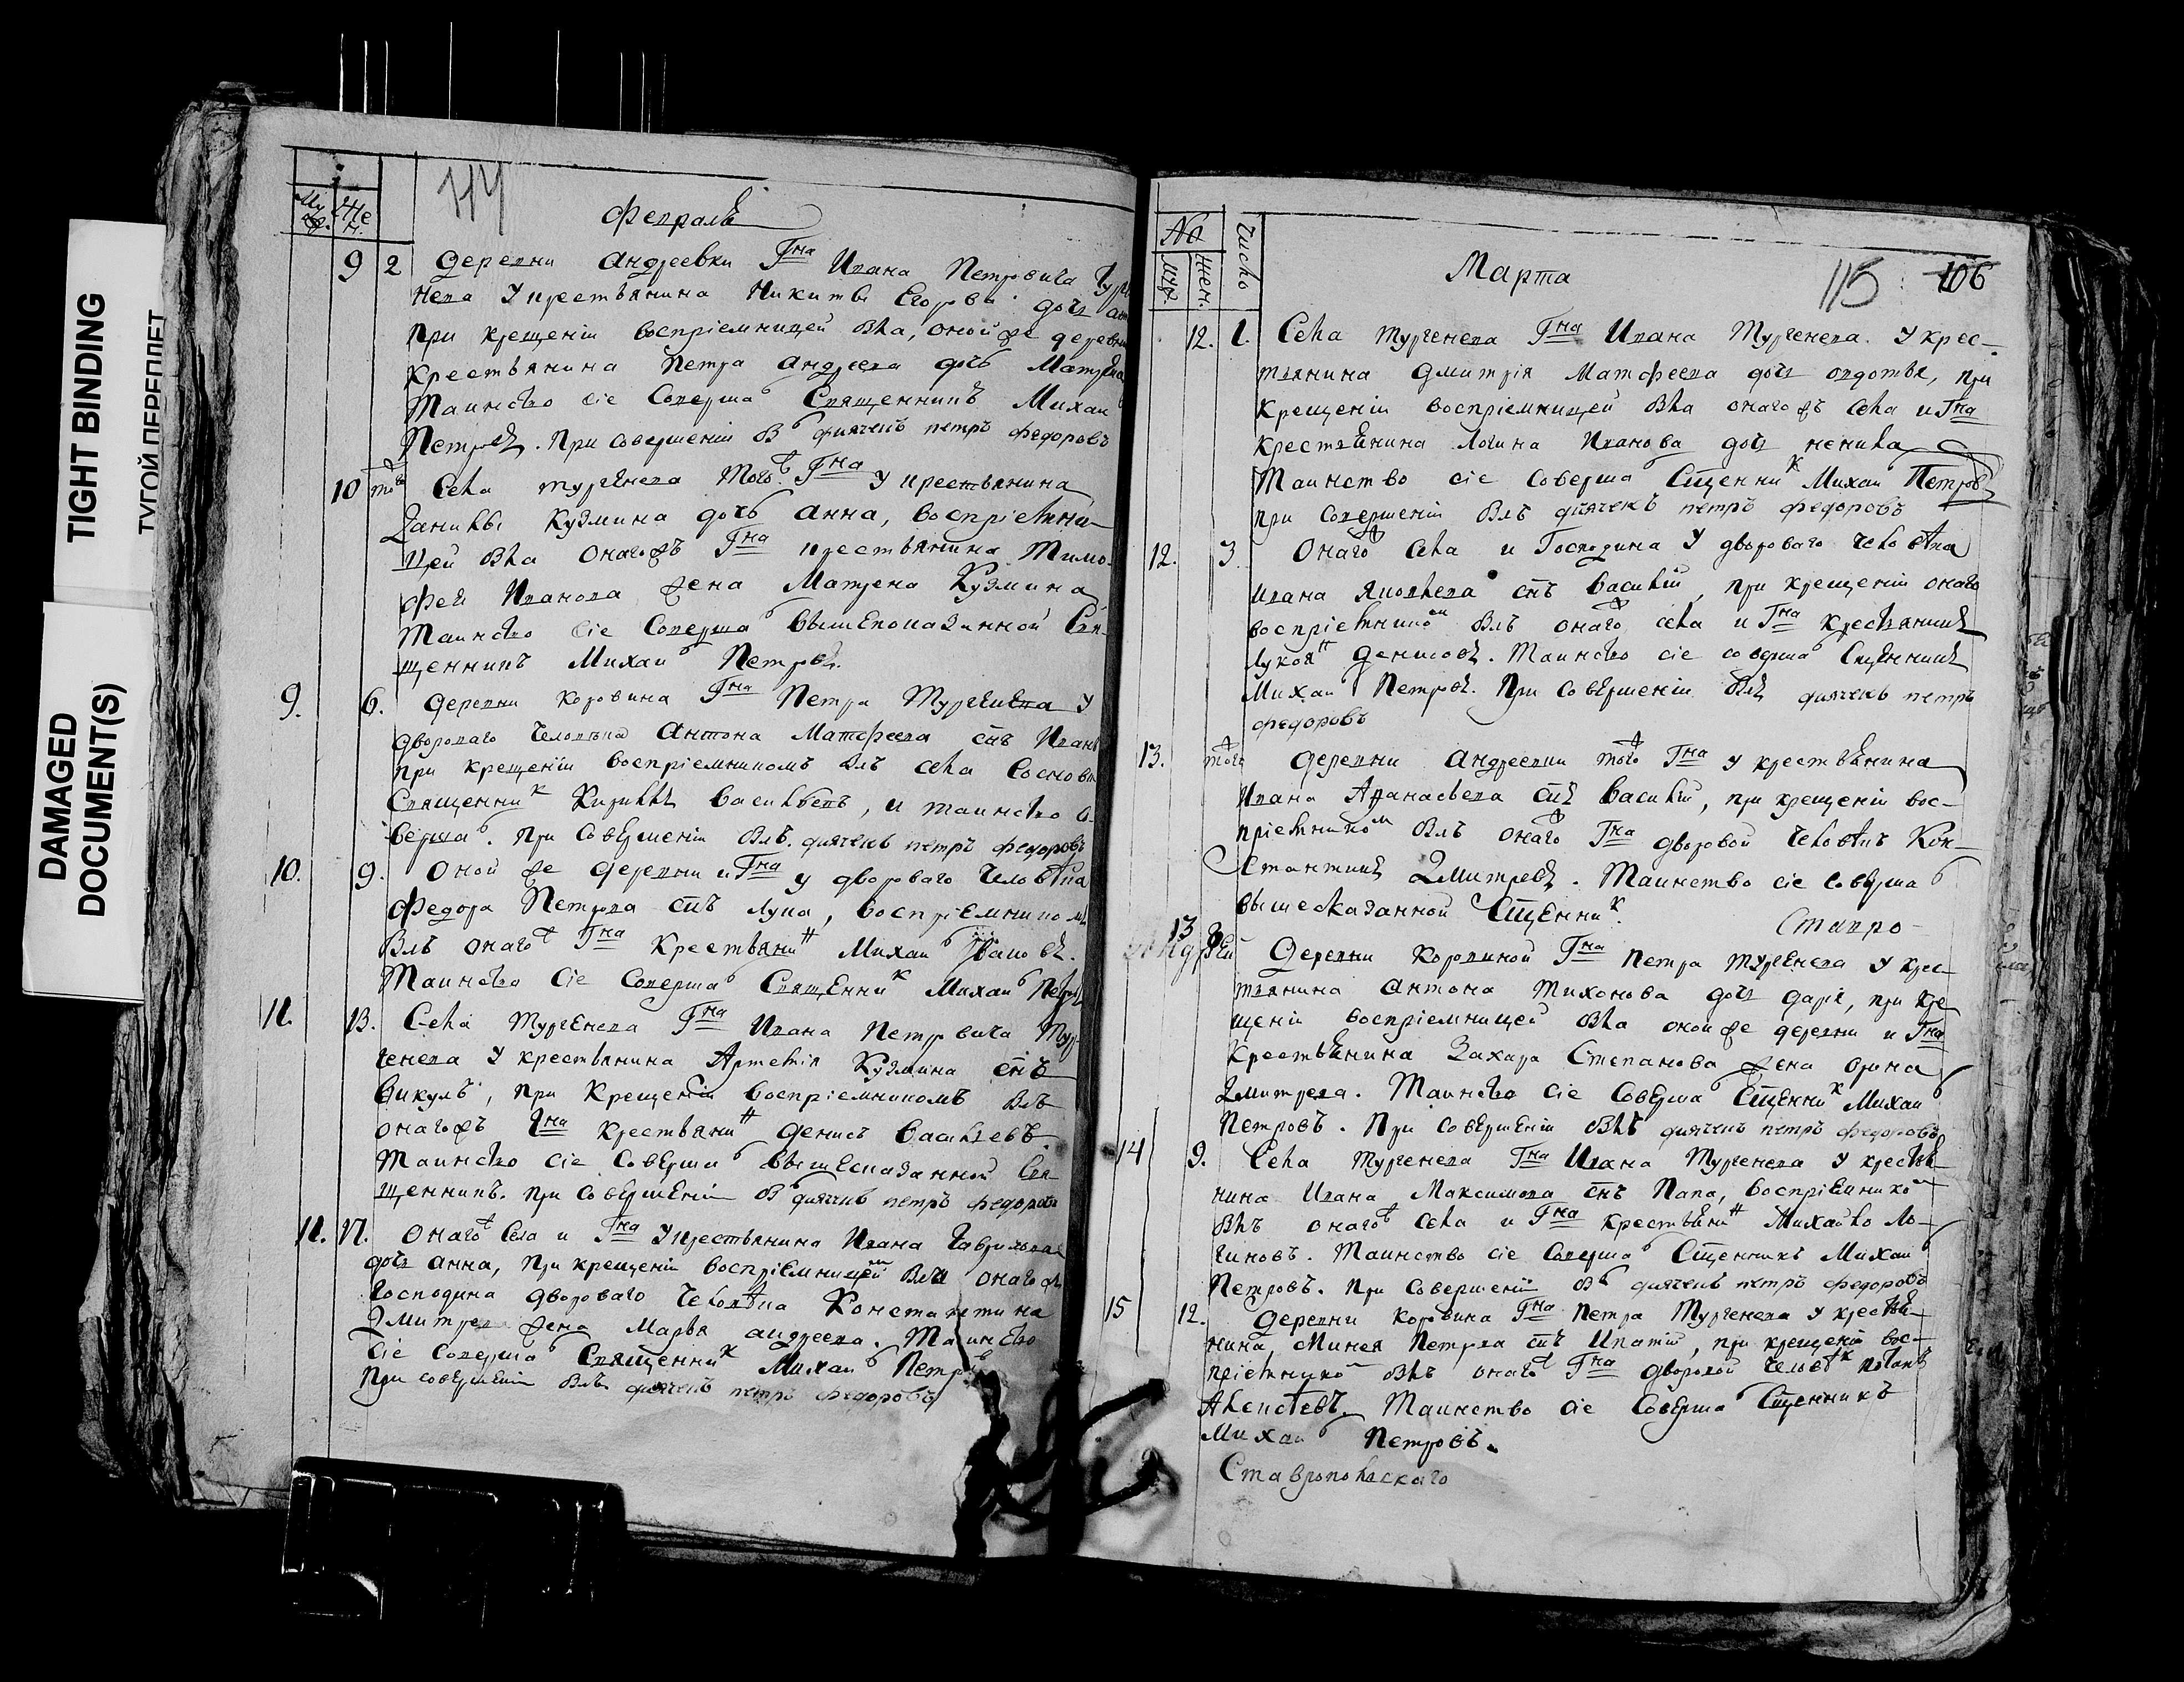 TIGHT BINDING
ТУГОЙ ПЕРЕПЛЕТ
DAMAGED
DOCUMENT(S)
114
Февраль
9 2 Деревни Андреевки Гна Ивана Петровича Турге
нева у крестьянина Никиты Егорова дочь
при крещеніи воспріемницей была, оной же деревни
крестьянина Петра Андреева дочь Матрена
Таинство сіе Соверша Священникъ Михаи
Петровъ. При совершеніи дьячекъ петръ федоровъ
10 того Села тургенева того Гна у крестьянина
Данилы Кузмина дочь Анна, воспріемни-
цей была онагожъ Гна крестьянина Тимо-
фея Иванова жена Матрена Кузмина
Таинство сіе Соверша вышепоказанной Свя-
щенникъ Михаи Петровъ.
9. 6. Деревни коровина Гна Петра Тургенева у
двороваго человека Антона Матфеева снъ Иванъ
при крещеніи воспріемникомъ былъ села
Священник Васильевъ, и таинство со-
верша. при Совершеніи былъ дьячекъ петръ федоровъ
10. 9. Оной же деревни и Гна у двороваго человека
Федора Петрова снъ лука, воспріемникомъ
былъ онаго Гна крестьянин Михаи Ивановъ.
Таинство Сіе Соверша Священник Михаи Петровъ
11. 13. Села Тургенева Гна Ивана Петровича Тур-
генева у крестьянина Артемія Кузмина снъ
викулъ, при крещеніи воспріемникомъ былъ
онагожъ Гна крестьянин денисъ васильевъ.
Таинство сіе Соверши вышесказанной Свя-
щенникъ. при Совершеніи дьячекъ петръ федоровъ
11. 17. Онаго Села и Гна у крестьянина Ивана Гаврилова
дочь анна, при крещеніи воспріемницей была онаго же
господина двороваго человека Константина
Дмитрева жена Марья андреева. Таинство
сіе Соверша Священник Михаи Петровъ
При совершеніи былъ дьячекъ петръ федоровъ
Марта
115 106
No число
муж. жен.
12. 1. Села тургенева Гна Ивана Тургенева. у крес-
тьянина Дмитрія Матфеева дочь овдотья, при
крещеніи воспріемницей была онагожъ села и Гна
крестьянина Логина Иванова дочь ненила
Таинство сіе Соверша Сщенник Михаи Петровъ
при совершеніи былъ дьячекъ петръ федоровъ
12. 3. Онаго Села и Господина у двороваго человека
ивана Яковлева снъ василій, при крещеніи онаго
воспріемником былъ онаго села и Гна крестьянинъ
Денисовъ. Таинство сіе соверша Сщенникъ
Михаи Петровъ. При совершеніи былъ дьячекъ петръ
федоровъ
13. того Деревни Андреевки того Гна у крестьянина
Ивана Афанасьева снъ василій, при крещеніи вос-
пріемником былъ онаго Гна дворовой человекъ Кон-
стантинъ Дмитревъ. Таинство сіе соверша
вышесказанной Сщенник.
Ставро-
13 8 Деревни Коровиной Гна Петра тургенева у крес-
тьянина антона тихонова дочь дарія, при кре
щеніи воспріемницей была оной же деревни и Гна
Крестьянина Захара Степанова жена орина
Дмитрева. Таинство сіе Соверша Сщенник Михаи
Петровъ. При совершеніи былъ дьячекъ петръ федоровъ
14 9. Села тургенева Гна Ивана Тургенева у крестья-
нина Ивана Максимова снъ воспріемником
былъ онаго села и Гна крестьянин Михайло Ло-
гиновъ. Таинство сіе Соверша Сщенникъ Михаи
Петровъ. при Совершеніи дьячекъ петръ федоровъ
15 12. Деревни коровина Гна Петра Тургенева у крестья-
нина Минея Петрова снъ Ипатій, при крещеніи вос-
пріемником былъ онаго Гна дворовой человек
Алексеевъ. Таинство сіе Соверша Сщенникъ
Михаи Петровъ.
Ставропольскаго